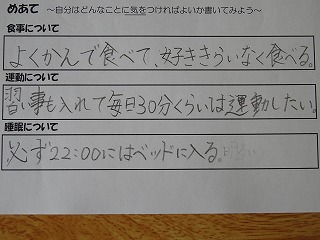 めあて ～自分はどんなことに気をつければよいか書いてみよう～
食事について
よくかんで食べて、好ききらいなく食べる。
運動について
習い事も入れて毎日30分くらいは運動したい。
睡眠について
必ず22:00にはベッドに入る。